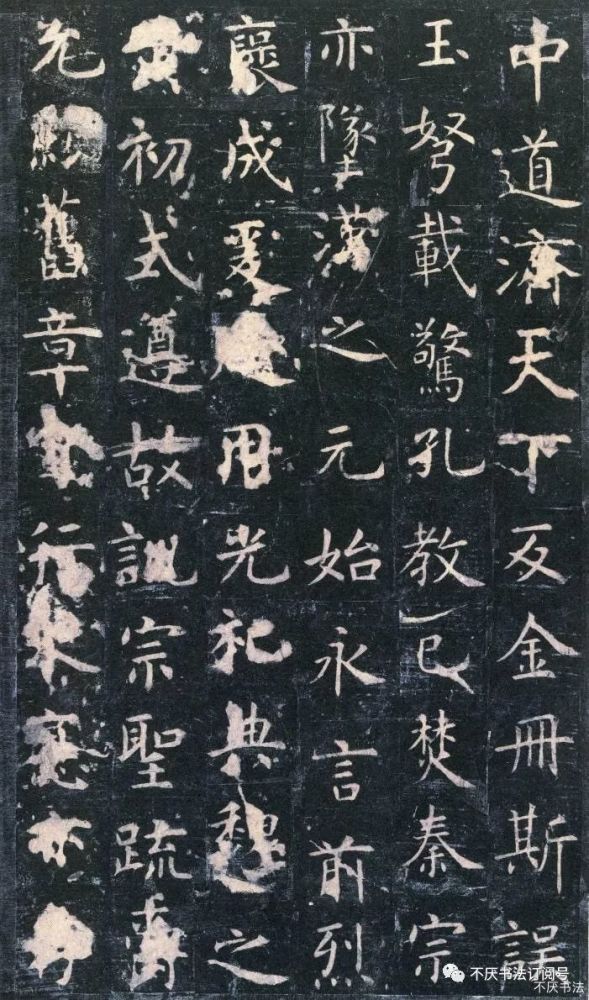 中道濟天下及金冊斯誤
玉弩載驚孔教已焚秦宗
亦墜漢之元始永言前烈
褒成爰用光祀典魏之
初式遵故訓宗聖疏爵
允舊章行亦存
不厌书法订阅号
不厌书法